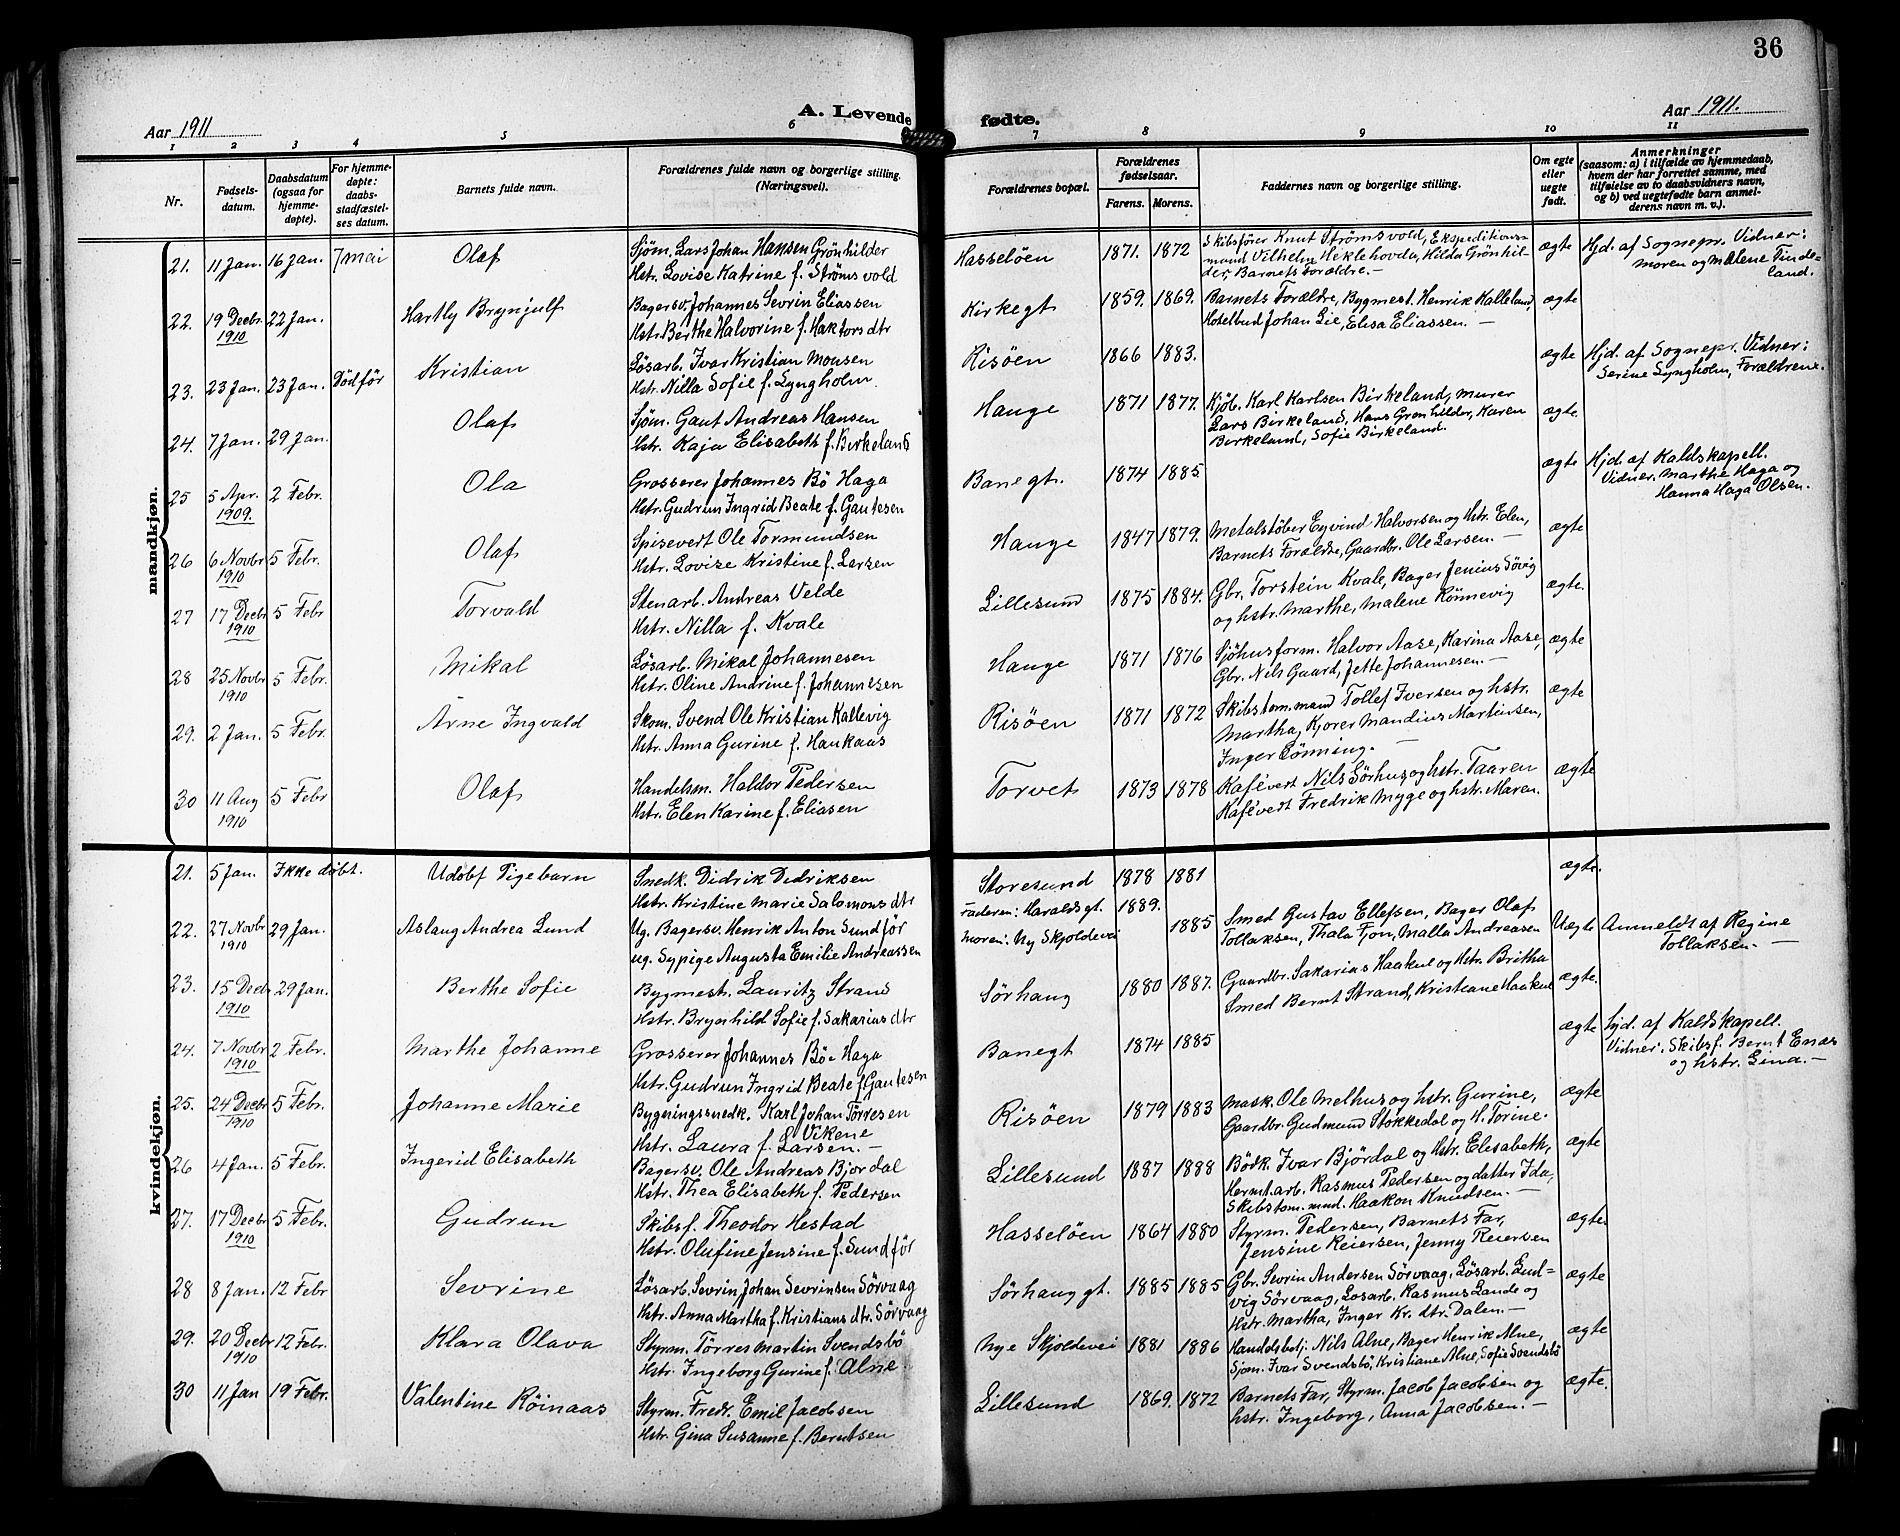 36
Aar 1911
A. Levende fødte.
Aar 1911.
1 2 3 4 5 6 7 8 9 10 11
Nr.
Fødsels-
datum.
Daabsdatum
(ogsaa for
hjemme-
døpte).
For hjemme-
døpte:
daabs-
stadfæstel-
ses datum.
Barnets fulde navn.
Forældrenes fulde navn og borgerlige stilling.
(Næringsvei).
Forældrenes bopæl.
Forældrenes
fødselsaar.
Farens. Morens.
Faddernes navn og borgerlige stilling.
Om egte
eller
uegte
født.
Anmerkninger
(saasom: a) i tilfælde av hjemmedaab,
hvem der har forrettet samme, med
tilføielse av to daabsvidners navn,
og b) ved uegtefødte barn anmel-
derens navn m. v.).
mandkjøn.
21. 11 Jan. 16 Jan. 7 mai Olaf
Sjøm. Lars Johan Hansen Grønhilder
Hstr. Lovise Katrine f. Strømsvold
Hasseløen 1871. 1872
Skibsfører Knut Strømsvold, Ekspeditions-
mand Vilhelm Heklehovda, Hilda Grønhil-
der, Barnets Forældre.—
ægte
Hjd. af Sognepr. Vidner:
moren og Malene Tinde-
land.
22. 19 Decbr. 22 Jan. Hartly Brynjulf
1910
Bagersv. Johannes Sevrin Eliassen
Hstr. Berthe Halvorine f. Haktorsdtr
Kirkegt 1859. 1869.
Barnets Forældre, Bygmest. Henrik Kalleland,
Hotelbud Johan Lie, Elisa Eliassen.—
ægte
23. 23 Jan. 23 Jan. Død før Kristian
Løsarb. Ivar Kristian Monsen
Hstr. Nilla Sofie f. Lyngholm.
Risøen 1866 1883.
ægte
Hjd. af Sognepr. Vidner:
Serine Lyngholm, Forældrene.
24. 7 Jan. 29 Jan. Olaf
Sjøm. Gaut Andreas Hansen
Hstr. Kaja Elisabeth f. Birkeland
Hauge 1871 1877.
Kjøb. Karl Karlsen Birkeland, Murer
Lars Birkeland, Hans Grønhilder, Karen
Birkeland, Sofie Birkeland.
ægte.
25 5 Apr. 2 Febr. Ola
1909.
Grosserer Johannes Bø Haga
Hstr. Gudrun Ingrid Beate f. Gautesen
Banegt. 1874 1885.
ægte
Hjd. af Kaldskapell.
Vidner. Marthe Haga og
Hanna Haga Olsen.
26 6 Novbr 5 Febr. Olaf
1910
Spisevert Ole Tormundsen
Hstr. Lovise Kristine f. Larsen
Hauge 1847 1879.
Metalstøber Eyvind Halvorsen og Hstr. Elen,
Barnets Forældre, Gaardbr. Ole Larsen.—
ægte
27 17 Decbr 5 Febr Torvald
1910
Stenarb. Andreas Velde
Hstr. Nilla f. Kvale
Lillesund 1875 1884.
Gbr. Torstein Kvale, Bager Jenius Søvig
og hstr. Marthe, Malene Rønnevig
ægte.
28 25 Novbr 5 Febr. Mikal
1910
Løsarb. Mikal Johannesen
Hstr. Oline Andrine f. Johannesen
Hauge 1871 1876
Sjøhusform. Halvor Aase, Karina Aase,
Gbr. Nils Gaard, Jette Johannesen.—
ægte
29. 2 Jan. 5 Febr. Arne Ingvald
Skom. Svend Ole Kristian Kallevig
Hstr. Anna Gurine f. Haukaas
Risøen 1871 1872
Skibstøm.mand Tollef Iversen og hstr.
Martha, Kjører Mandius Martinsen,
Inger Lønning.—
ægte
30 11 Aug 5 Febr Olaf
1910
Handelsm. Haldor Pedersen
Hstr. Elen Karine f. Eliasen
Torvet 1873 1878
Kafévert Nils Sørhus og hstr. Taaren
Kafévert Fredrik Myge og hstr. Maren.
ægte
kvindekjøn.
21. 5 Jan. Ikke døbt. Udøbt Pigebarn
Snedk. Didrik Didriksen
Hstr. Kristine Marie Salomonsdtr
Storesund 1878 1881
ægte.
22. 27 Novbr 29 Jan. Aslaug Andrea Lund
1910
Ug. Bagersv. Henrik Anton Sundfør
ug. Sypige Augusta Emilie Andreassen
Faderen: Haraldsgt. 1889.
Moren: Ny Skjoldevei 1885
Smed Gustav Ellefsen, Bager Olaf
Tollaksen, Thala Fjon, Malla Andreasen
Uægte
Anmeldt af Regine
Tollaksen.—
23. 15 Decbr 29 Jan. Berthe Sofie
1910
Bygmestr. Lauritz Strand
Hstr. Brynhild Sofie f. Sakariasdtr
Sørhaug 1880 1887.
Gaardbr. Sakarias Haakul og Hstr. Britha
Smed Bernt Strand, Kristiane Haakul
ægte.
24. 7 Novbr 2 Febr. Marthe Johanne
1910
Grosserer Johannes Bøe Haga
Hstr. Gudrun Ingrid Beate f. Gautesen
Banegt 1874 1885
ægte
Hjd. af Kaldskapell.
Vidner: Skibsf. Bernt Enæs
og hstr. Lina.—
25. 24 Decbr 5 Febr. Johanne Marie
1910
Bygeringssnedk. Karl Johan Tørresen
Vikene
Hstr. Laura f. Larsen.—
Risøen 1879 1883
Mask. Ole Melhus og hstr. Gurine,
Gaardbr. Gudmund Stokkedal og H. Torine.
ægte
26 4 Jan. 5 Febr. Ingerid Elisabeth
Bagersv. Ole Andreas Bjordal
Hstr. Thea Elisabeth f. Pedersen
Lillesund 1887 1888
Bødk. Ivar Bjørdal og Hstr. Elisabeth,
Hermt.arb. Rasmus Pedersen og datter Ida,
Skibstøm.mnd. Haakon Knudsen.—
ægte
27. 17 Decbr 5 Febr. Gudrun
1910
Skibsf. Theodor Hestad
Hstr. Olufine Jensine f. Sundfør
Hasseløen 1864 1880
Styrm. Pedersen, Barnets Far,
Jensine Reiersen, Jenny Reiersen
ægte.
28 8 Jan. 12 Febr Sevrine
Løsarb. Sevrin Johan Sevrinsen Sørvaag
Hstr. Anna Martha f. Kristiansdtr. Sørvaag
Sørhauggt. 1885 1885
Gbr. Sevrin Andersen Sørvaag, Løsarb. Lud-
vig Sørvaag, Løsarb. Rasmus Lande og
Hstr. Martha, Inger Kr. dtr. Dalen.—
ægte
29. 20 Decbr 12 Febr. Klara Olava
1910
Styrm. Tørres Martin Svendsbø
Hstr. Ingeborg Gurine f. Alne
Nye Skjoldevei 1881 1886
Handelsbetj. Nils Alne, Bager Henrik Alne,
Sjøm. Ivar Svendsbø, Kristiane Alne, Sofie Svendsbø
ægte
30 11 Jan 19 Febr. Valentine Røinaas
Styrm. Fredr. Emil Jacobsen
Hstr. Gina Susanne f. Berntsen
Lillesund 1869. 1872
Barnets Far, Styrm. Jacob Jacobsen og
hstr. Ingeborg, Anna Jacobsen.—
ægte.